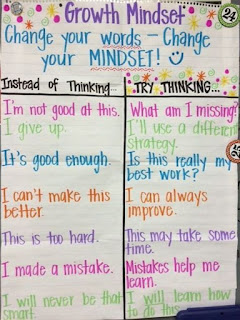 Growth Mindset
24
Change your words - Change
your MINDSET!
Instead of Thinking... TRY THINKING...
I'm not good at this. What am I missing?
I give up. I'll use a different
strategy.
It's good enough. Is this really my
best work?
I can't make this I can always
better. improve.
This is too hard. This may take some
time.
I made a mistake. Mistakes help me
learn.
I will never be that I will learn how
smart. to do this.